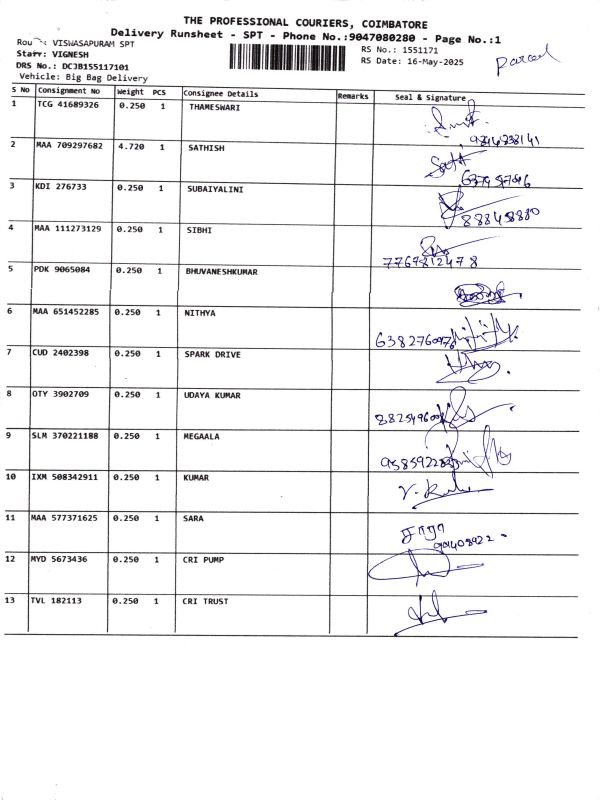 THE PROFESSIONAL COURIERS, COIMBATORE
Delivery Runsheet - SPT - Phone No.:9047080280 - Page No.:1
VISWASAPURAM SPT
RS No.: 1551171
Staff: VIGNESH
RS Date: 16-May-2025
parcel
DRS No.: DCJB155117101
Vehicle: Big Bag Delivery
S No Consignment No Weight PCS Consignee Details Remarks Seal & Signature
1 TCG 41689326 0.250 1 THAMESWARI
2 MAA 709297682 4.720 1 SATHISH
3 KDI 276733 0.250 1 SUBAIYALINI
4 MAA 111273129 0.250 1 SIBHI
7767812478
5 PDK 9065084 0.250 1 BHUVANESHKUMAR
6 MAA 651452285 0.250 1 NITHYA
7 CUD 2402398 0.250 1 SPARK DRIVE
8 OTY 3902709 0.250 1 UDAYA KUMAR
9 SLM 370221188 0.250 1 MEGAALA
10 IXM 508342911 0.250 1 KUMAR
11 MAA 577371625 0.250 1 SARA
சாரா
12 MYD 5673436 0.250 1 CRI PUMP
13 TVL 182113 0.250 1 CRI TRUST